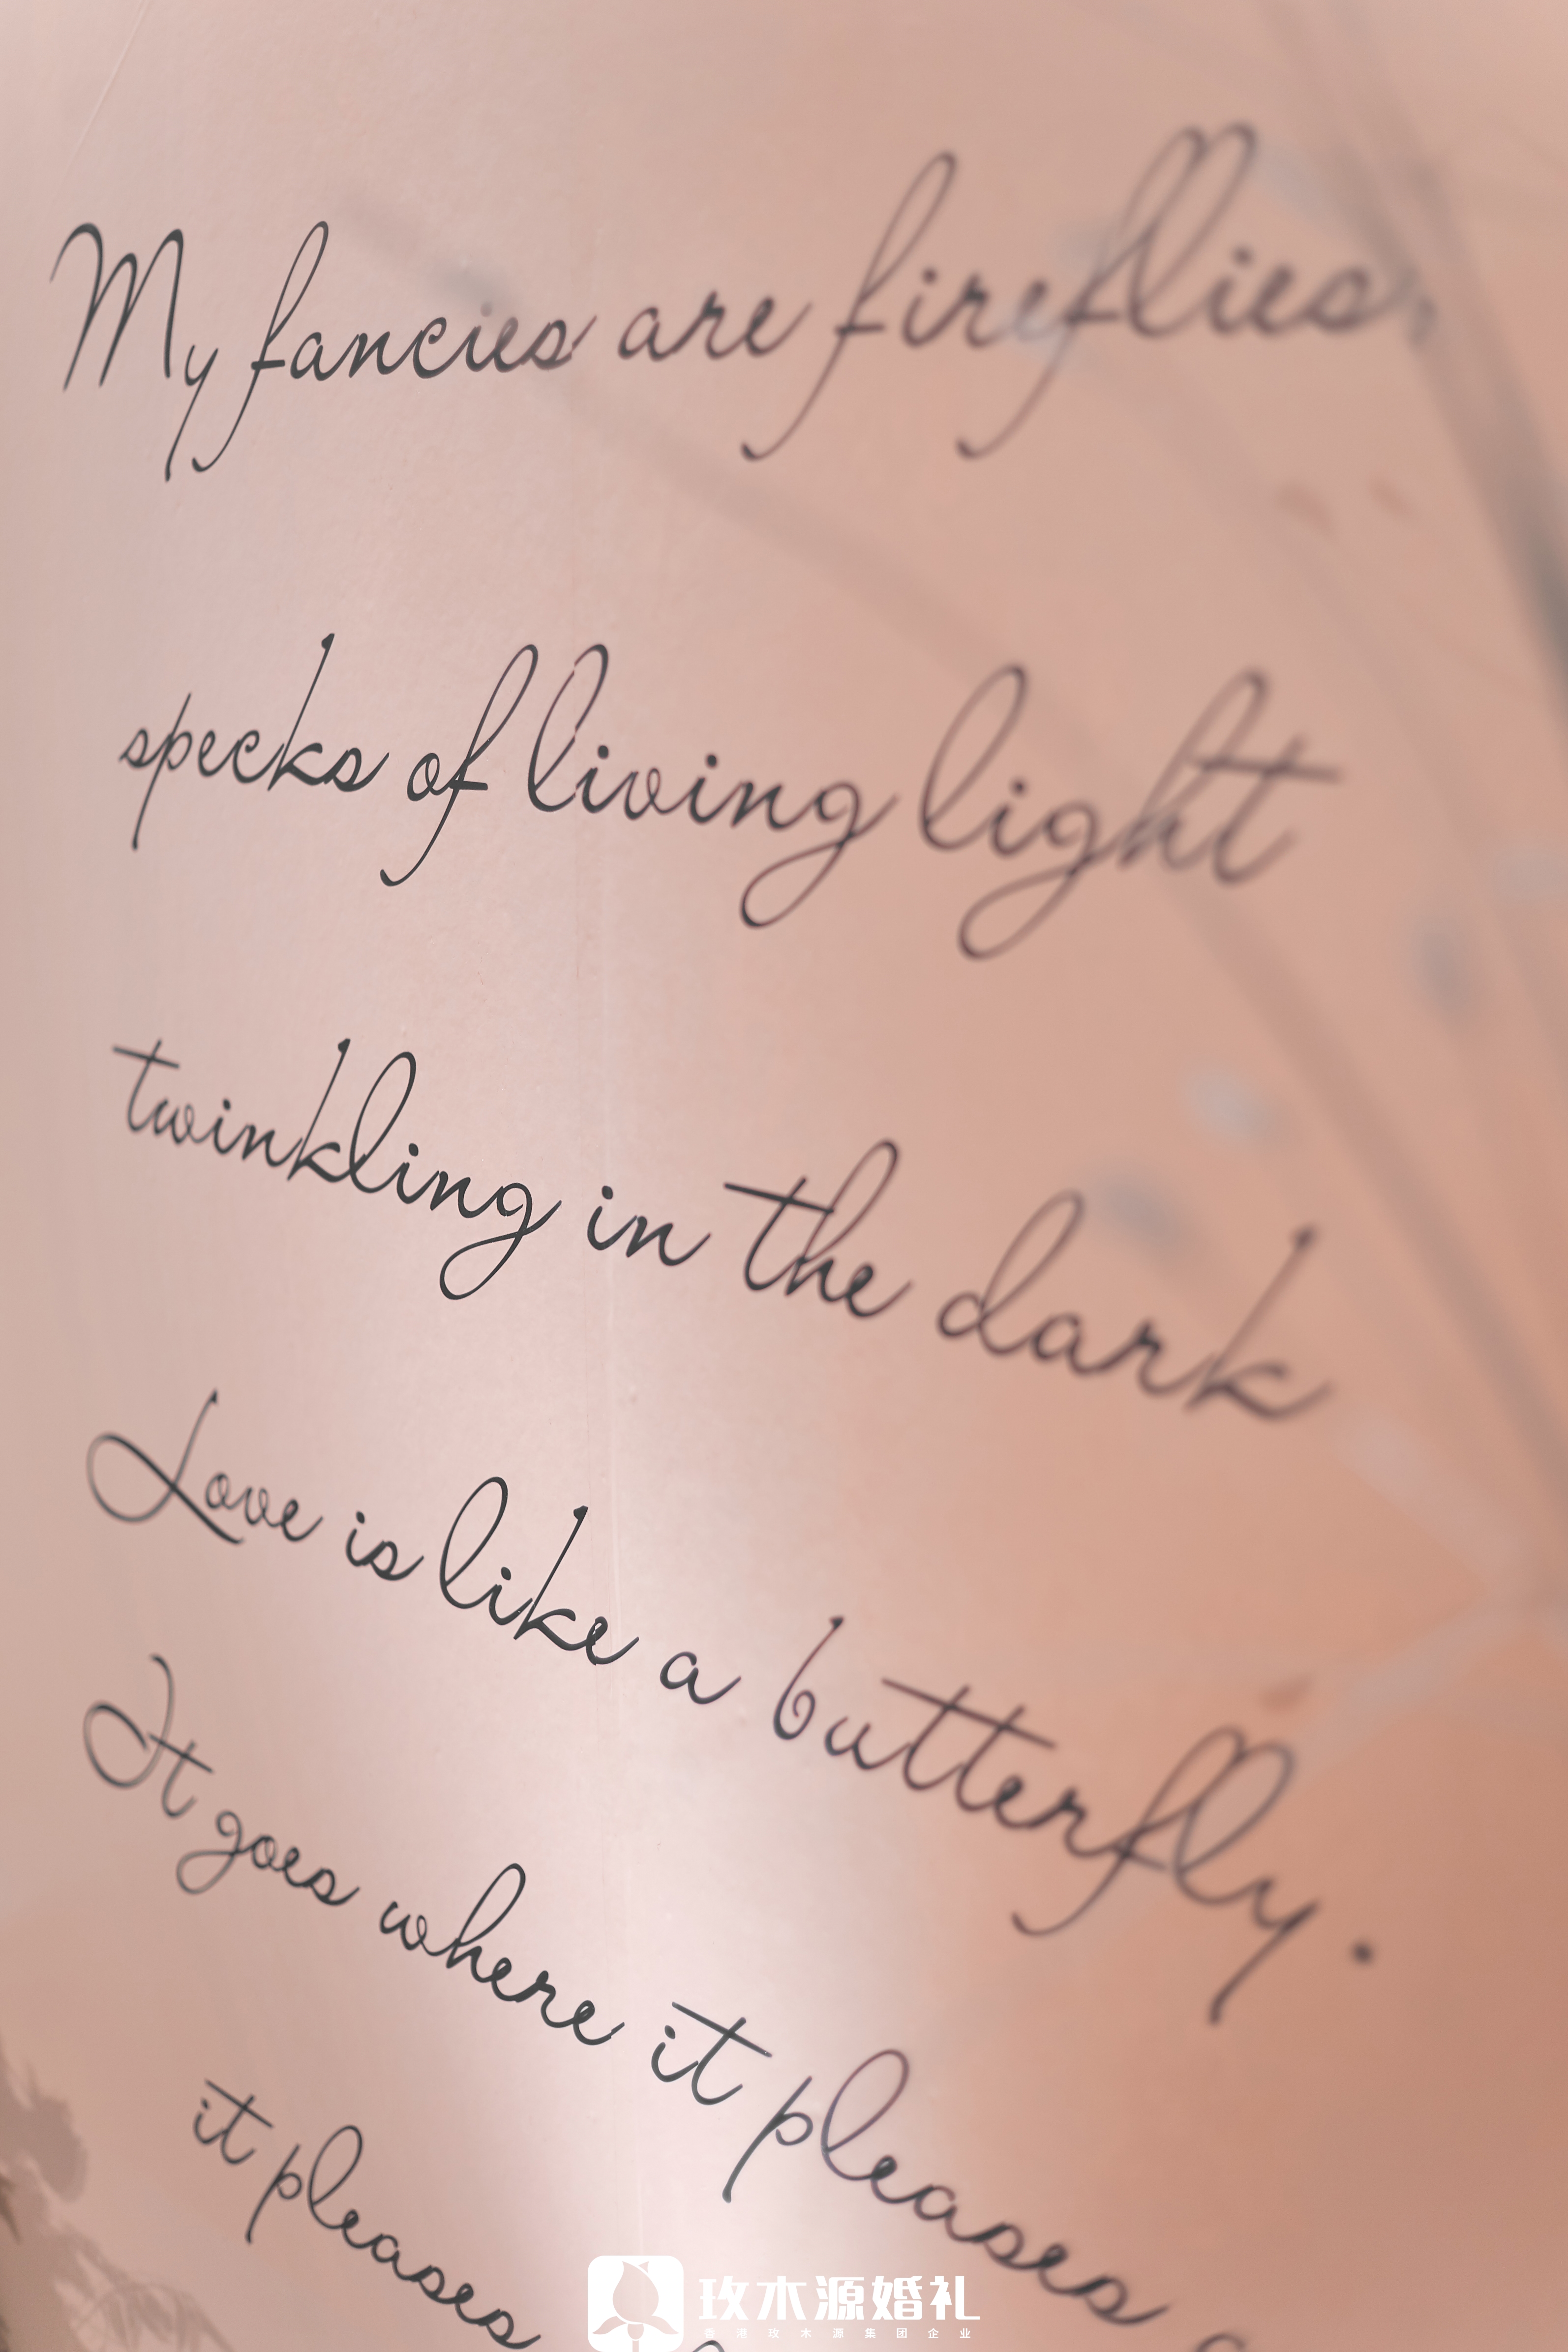 My fancies are fireflies,
specks of living light
twinkling in the dark
Love is like a butterfly.
It goes where it pleases
it pleases
玫木源婚礼
香港玫木源集团企业